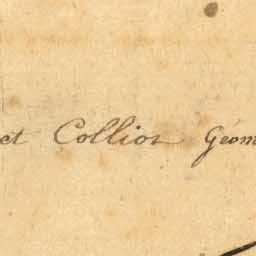 et Collion Géom